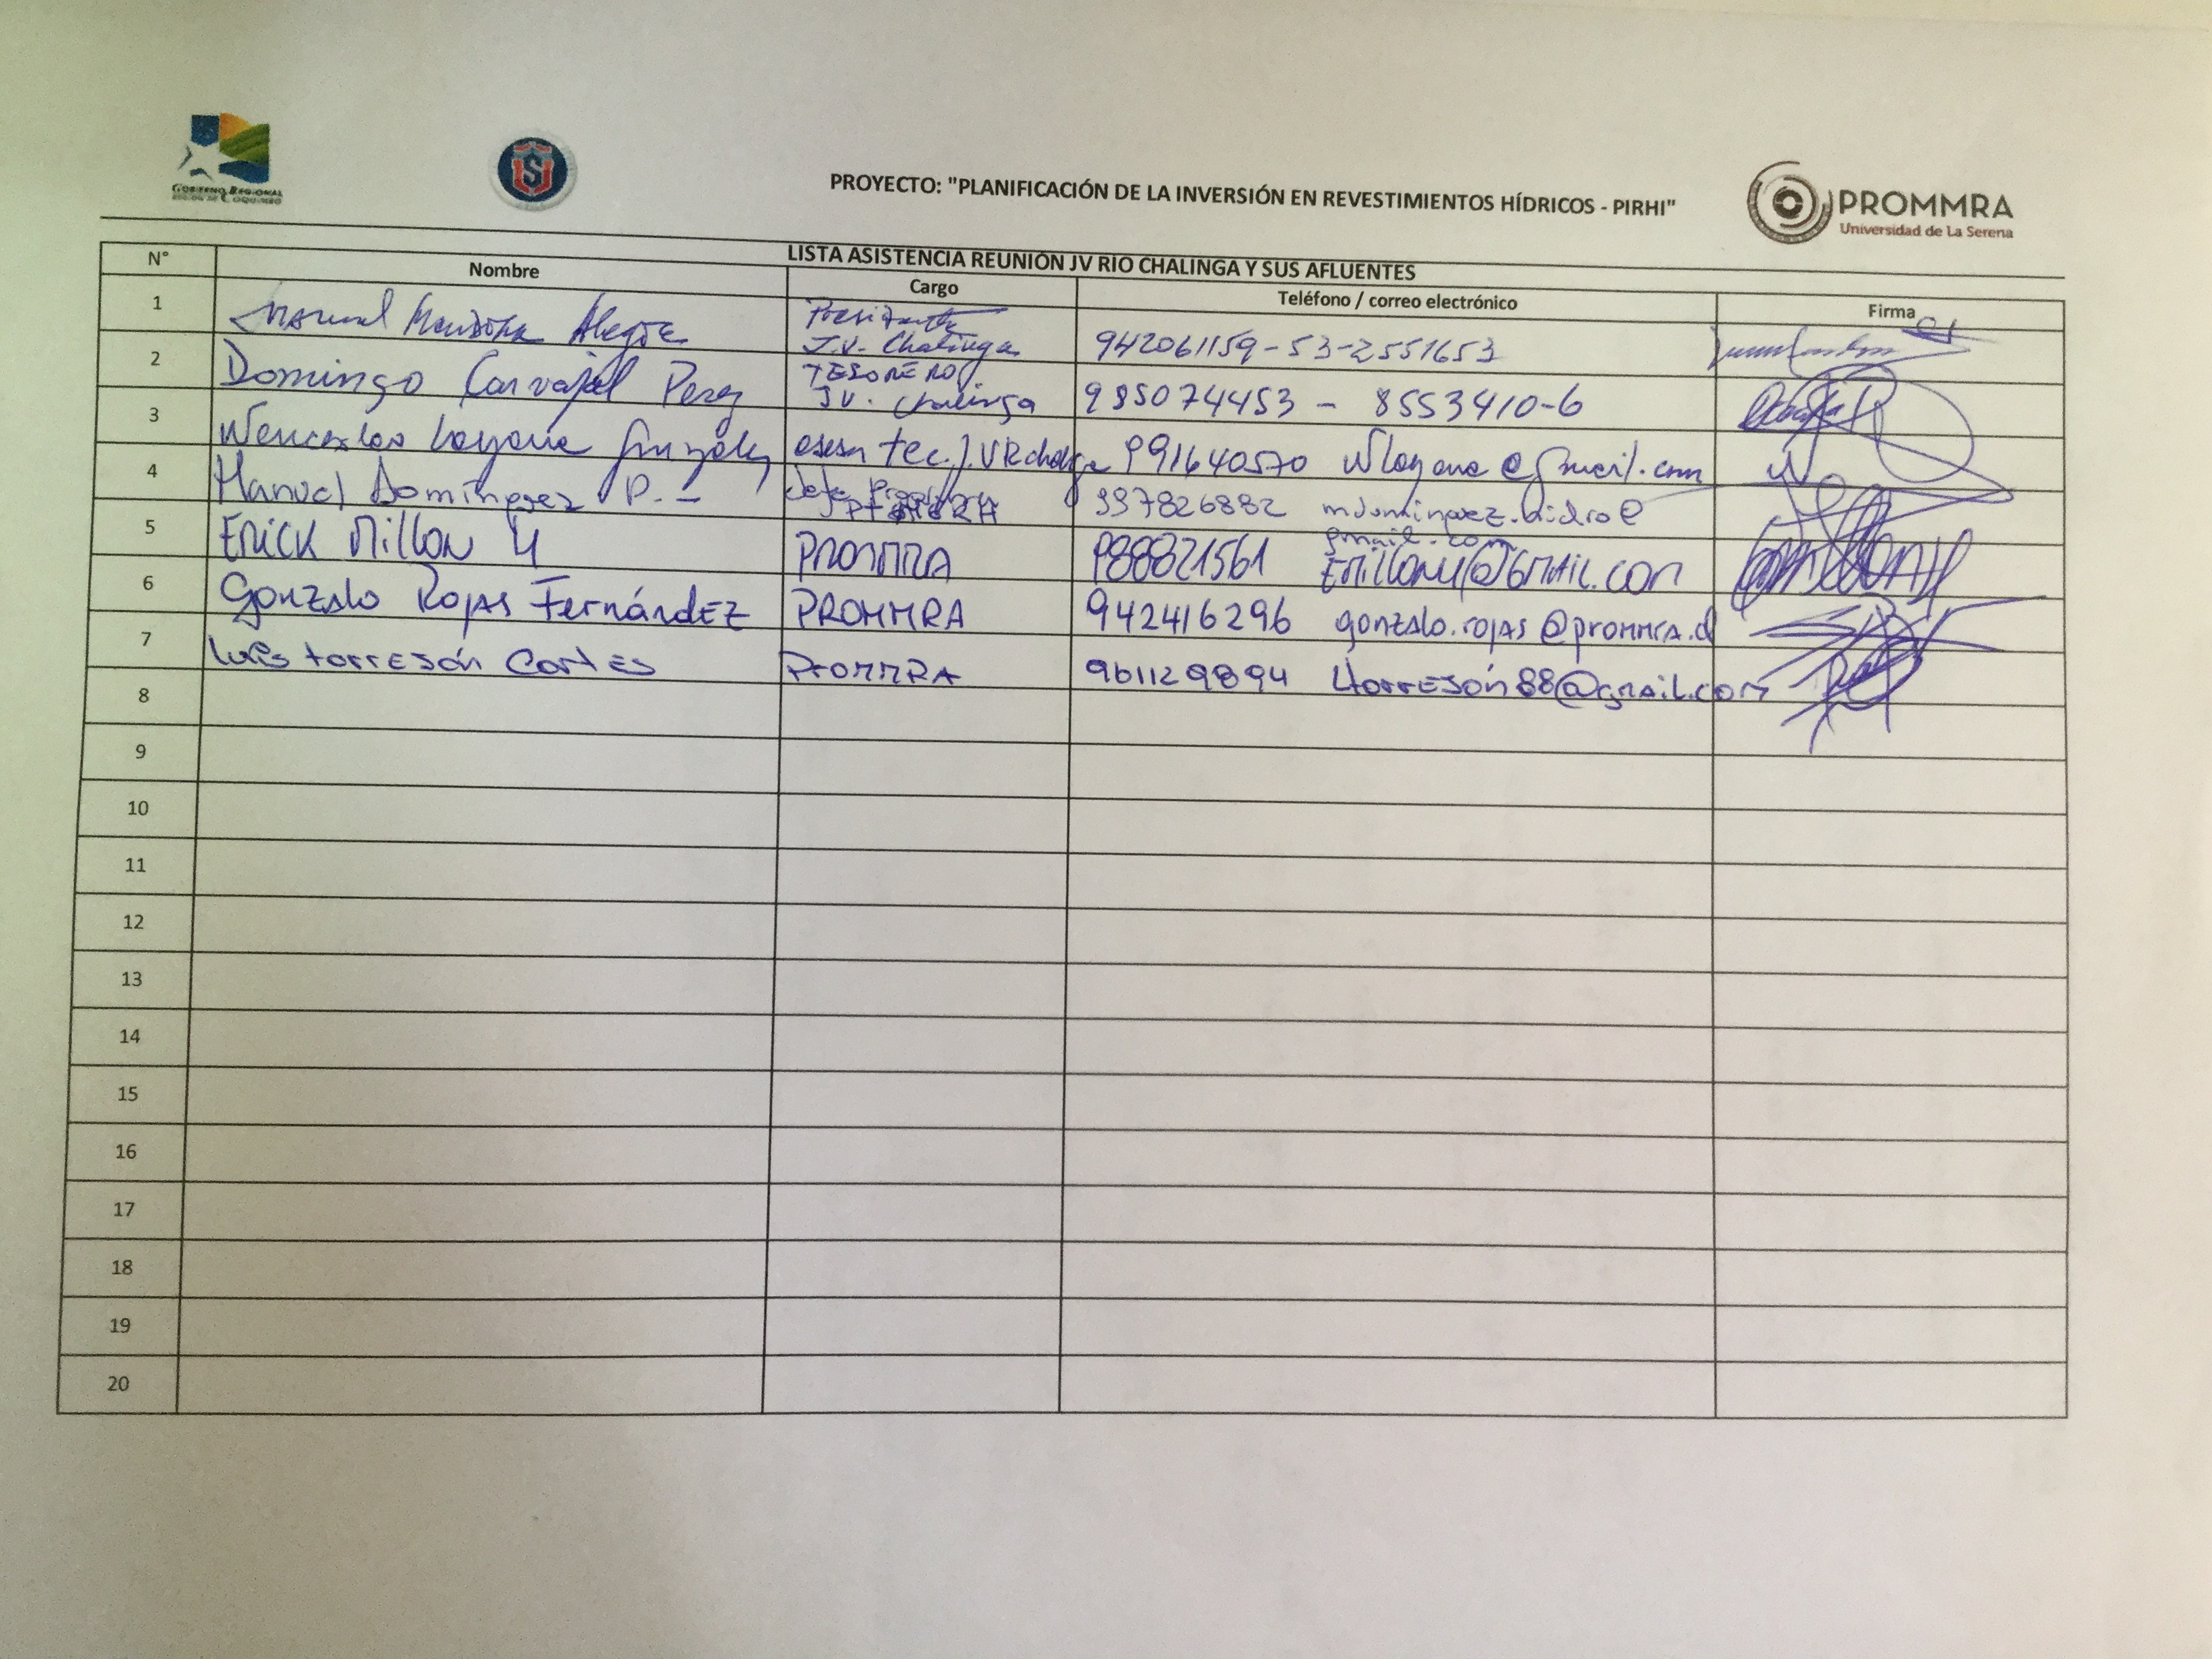 GOBIERNO REGIONAL
REGIÓN DE COQUIMBO
S
PROYECTO: "PLANIFICACIÓN DE LA INVERSIÓN EN REVESTIMIENTOS HÍDRICOS - PIRHI"
PROMMRA
Universidad de La Serena
LISTA ASISTENCIA REUNIÓN JV RIO CHALINGA Y SUS AFLUENTES
N° Nombre Cargo Teléfono / correo electrónico Firma
1 Manuel Mendoza Alegre Presidente J.V. Chalinga 942061159-53-2551653
2 Domingo Carvajal Perez TESORERO J.V. Chalinga 985074453 - 8553410-6
3 Wenceslao Loyola González asesor tec. J.V R chalinga 991640570
4 Manuel Domínguez P. Jefe 997826882 mdominguez.hidro@gmail.com
5 Erick Millon Y PROMMRA 988821561 Emillony@Gmail.com
6 Gonzalo Rojas Fernández PROMMRA 942416296 gonzalo.rojas@prommra.cl
7 Luis torrejón Cortes PROMMRA 961129894 ltorrejón88@gmail.com
8
9
10
11
12
13
14
15
16
17
18
19
20